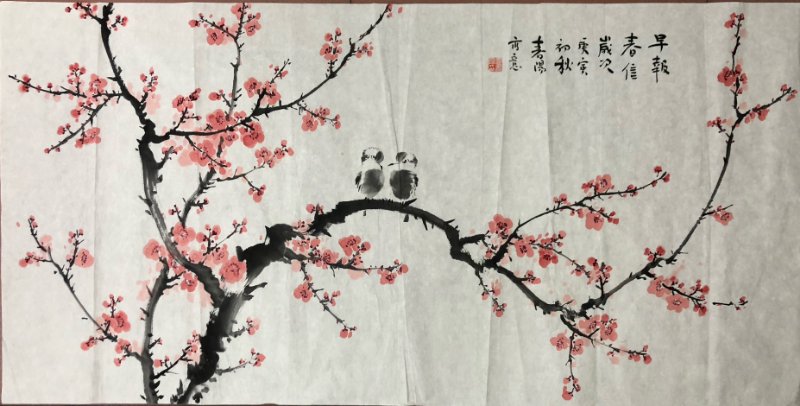 早報
春信
歲次
庚寅
初秋
春陽
寫意